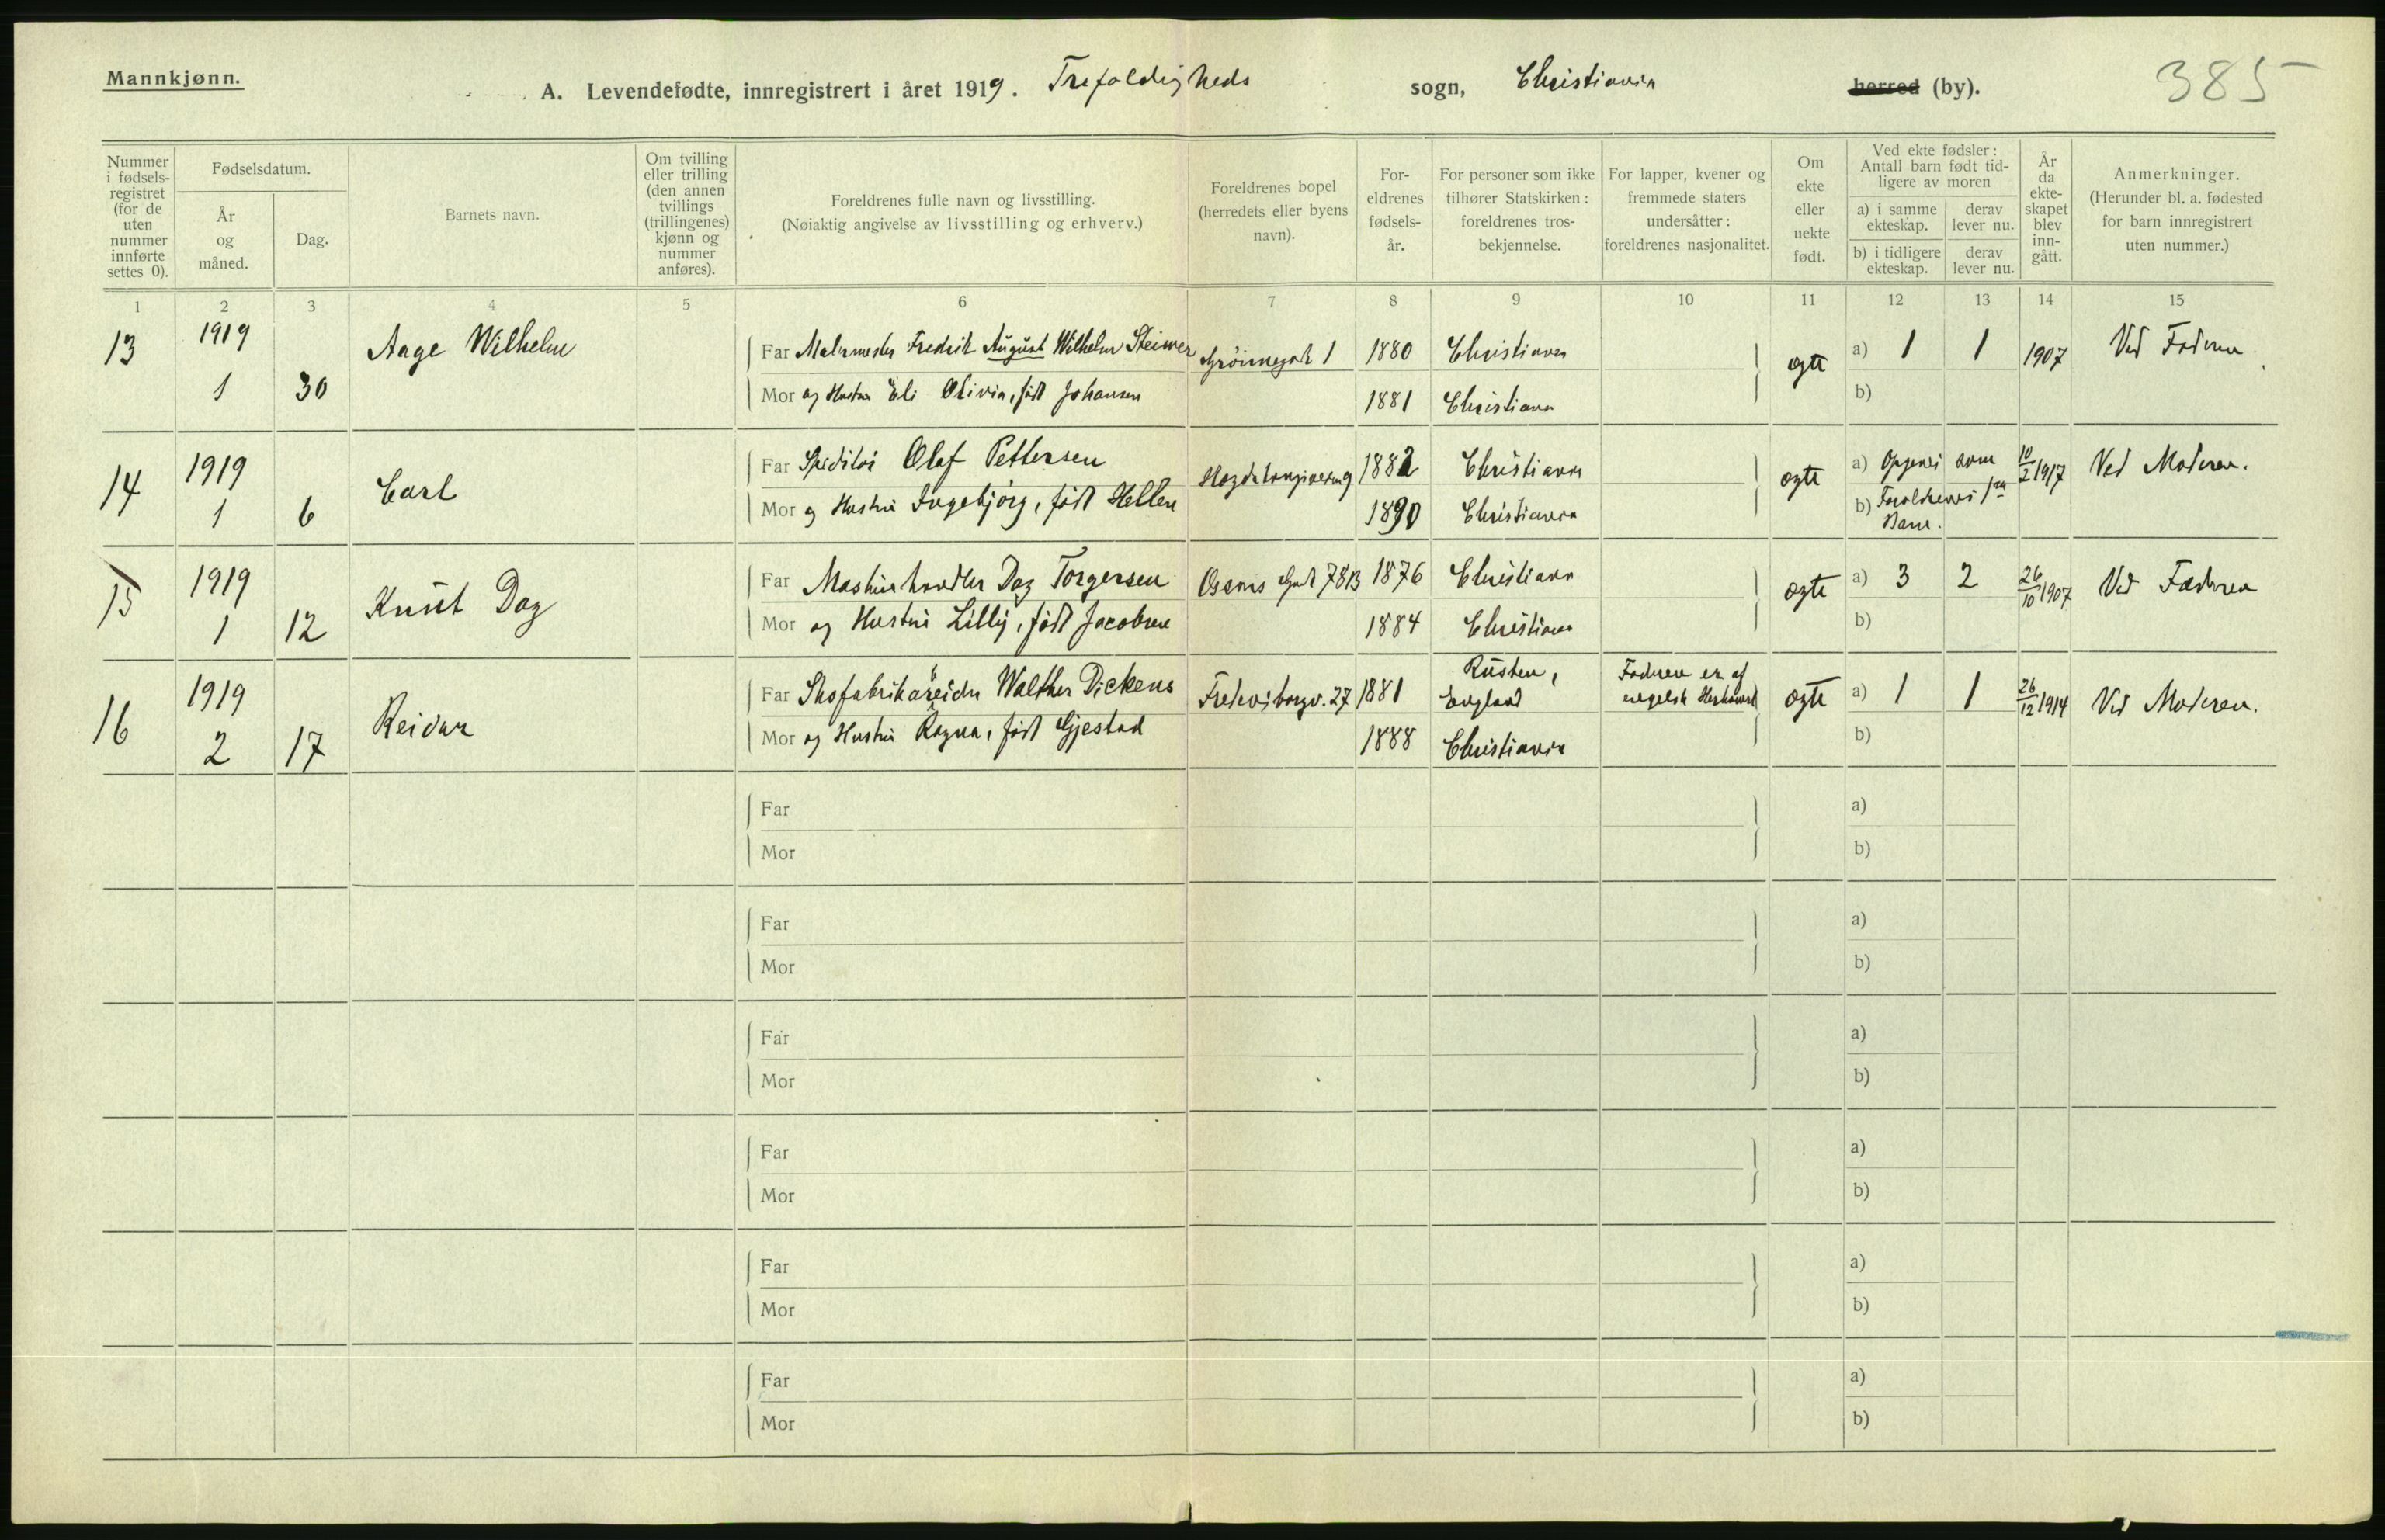 Mannkjønn.
A. Levendefødte, innregistrert i året 1919. Trefoldigheds sogn, Christiania herred (by). 385
Nummer i fødselsregistret (for de uten nummer innførte settes 0).
Fødselsdatum.
År og måned.
Dag.
Barnets navn.
Om tvilling eller trilling (den annen tvillings (trillingenes) kjønn og nummer anføres).
Foreldrenes fulle navn og livsstilling.
(Nøiaktig angivelse av livsstilling og erhverv.)
Foreldrenes bopel (herredets eller byens navn).
Foreldrenes fødselsår.
For personer som ikke tilhører Statskirken: foreldrenes trosbekjennelse.
For lapper, kvener og fremmede staters undersåtter: foreldrenes nasjonalitet.
Om ekte eller uekte født.
Ved ekte fødsler: Antall barn født tidligere av moren
a) i samme ekteskap. derav lever nu.
b) i tidligere ekteskap. derav lever nu.
År da ekteskapet blev inngått.
Anmerkninger.
(Herunder bl. a. fødested for barn innregistrert uten nummer.)
1 2 3 4 5 6 7 8 9 10 11 12 13 14 15
13 1919 Aage Wilhelm Far Malermester Fredrik August Wilhelm Steiwer Grönnegade 1 1880 Christiania ægte a) 1 1 1907 Ved Faderen
1 30 Mor og Hustru Eli Olivia, född Johansen 1881 Christiania b)
14 1919 Carl Far Speditör Olaf Pettersen 1882 Christiania ægte a) Opgives som 10/2 1917 Ved Moderen.
1 6 Mor og Hustru Ingebjörg, född Hellen 1890 Christiania b) Forældrenes 1ste
Barn.
15 1919 Knut Dag Far Maskinhandler Dag Torgersen Oscars Gade 78B 1876 Christiania ægte a) 3 2 26/10 1907 Ved Faderen
1 12 Mor og Hustru Lilly, född Jacobsen 1884 Christiania b)
16 1919 Reidar Far Skofabrikarbeider Walther Dickens Fredensborgv. 27 1881 England Faderen er af
engelsk Herkomst ægte a) 1 1 26/12 1914 Ved Moderen.
2 17 Mor og Hustru Ragna, född Gjestad 1888 Christiania b)
Far a)
Mor b)
Far a)
Mor b)
Far a)
Mor b)
Far a)
Mor b)
Far a)
Mor b)
Far a)
Mor b)